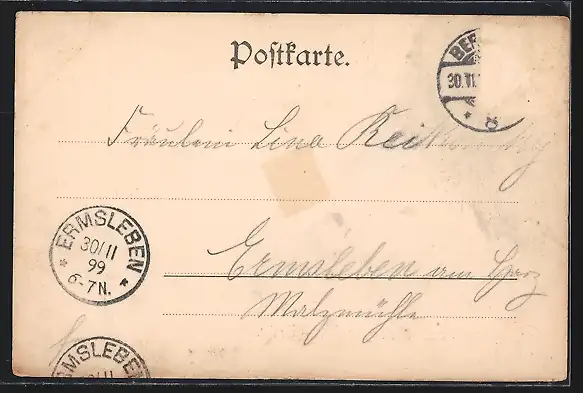 Postkarte.
BER
30.11.
8
Fräulein Lina
ERMSLEBEN
30/11
99
6-7N.
Ermsleben am Harz
Malzmühle
ERMSLEBEN
30/11